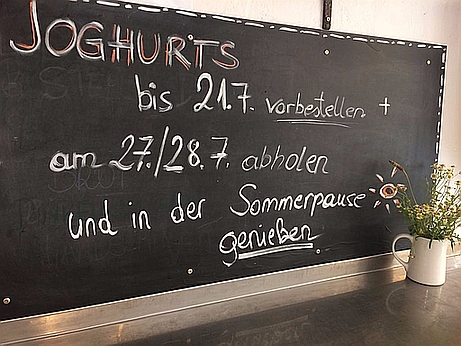 JOGHURTS
bis 21.7. vorbestellen +
am 27./28.7. abholen
und in der Sommerpause
genießen